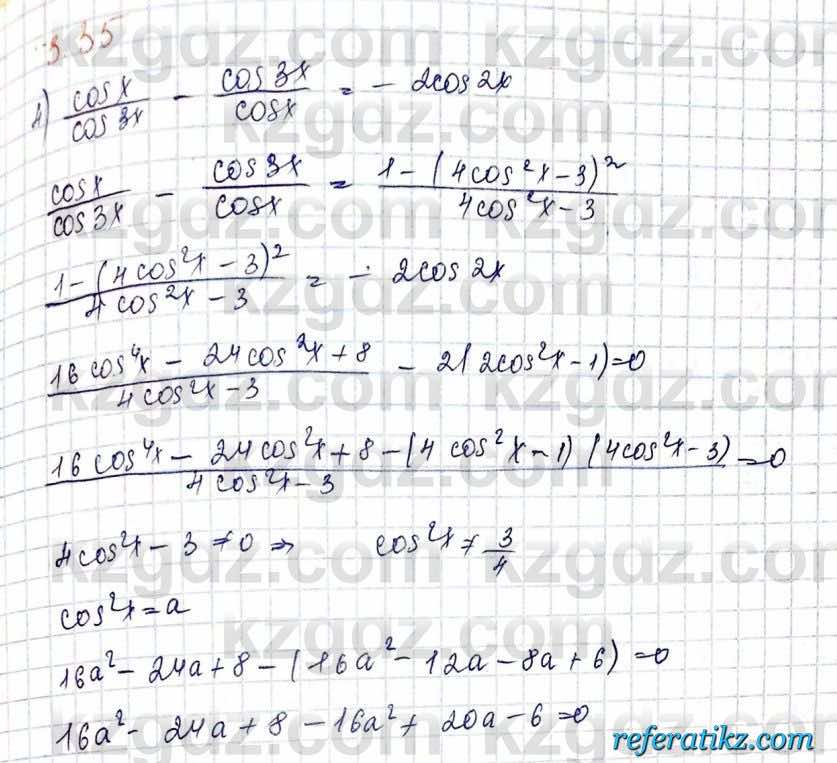 3.35
4) cosx/cos3x - cos3x/cosx = - 2cos2x
cosx/cos3x - cos3x/cosx = 1-(4cos²x-3)²/4cos²x-3
1-(4cos²x-3)²/4cos²x-3 = - 2cos2x
16cos⁴x - 24cos²x+8/4cos²x-3 - 2(2cos²x-1)=0
16cos⁴x - 24cos²x+8-(4cos²x-1)(4cos²x-3)/4cos²x-3 =0
4cos²x-3≠0 => cos²x≠3/4
cos²x=a
16a²-24a+8-(16a²-12a-8a+6)=0
16a²-24a+8-16a²+20a-6=0
kzgdz.com
referatikz.com